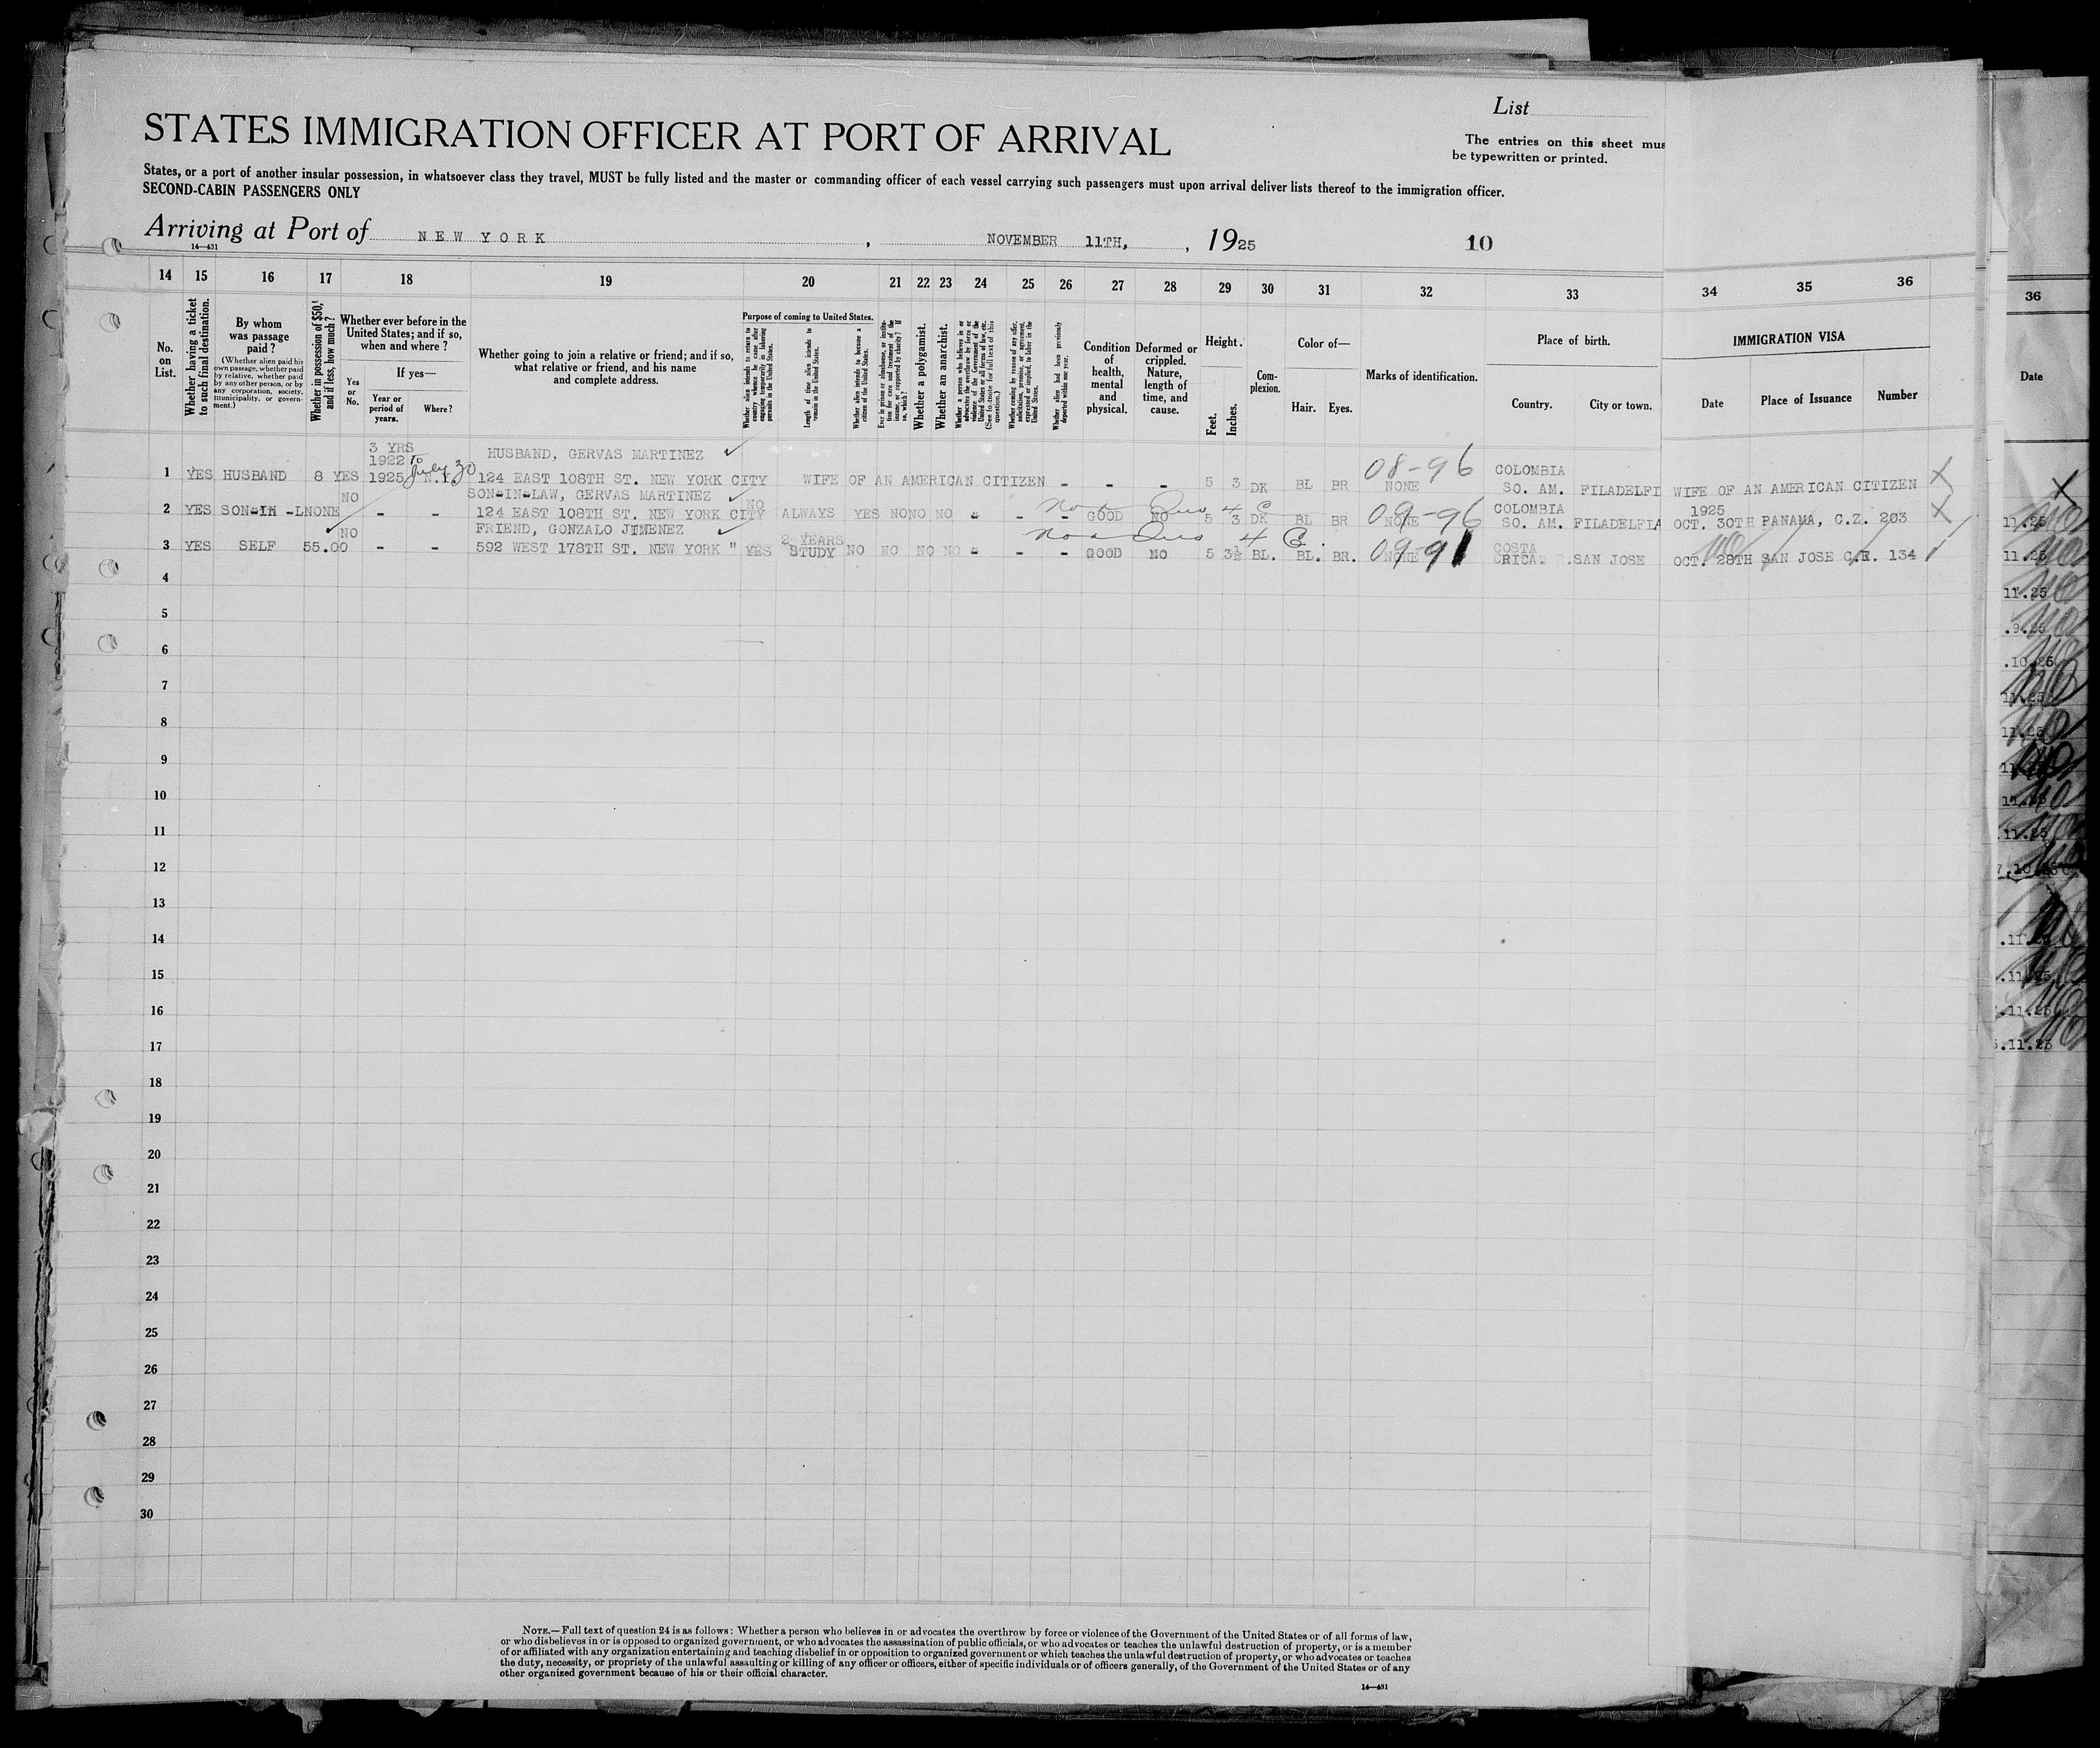 List
STATES IMMIGRATION OFFICER AT PORT OF ARRIVAL
The entries on this sheet mus
be typewritten or printed.
States, or a port of another insular possession, in whatsoever class they travel, MUST be fully listed and the master or commanding officer of each vessel carrying such passengers must upon arrival deliver lists thereof to the immigration officer.
SECOND-CABIN PASSENGERS ONLY
Arriving at Port of NEW YORK, NOVEMBER 11TH, , 1925 10
14—431
14 15 16 17 18 19 20 21 22 23 24 25 26 27 28 29 30 31 32 33 34 35 36
No. on List.
Whether having a ticket to such final destination.
By whom was passage paid?
(Whether alien paid his own passage, whether paid by relative, whether paid by any other person, or by any corporation, society, municipality, or government.)
Whether in possession of $50, and if less, how much?
Whether ever before in the United States; and if so, when and where?
Yes or No.
If yes—
Year or period of years.
Where?
Whether going to join a relative or friend; and if so, what relative or friend, and his name and complete address.
Purpose of coming to United States.
Whether alien intends to return to country whence he came after engaging temporarily in laboring pursuits in the United States.
Length of time alien intends to remain in the United States.
Whether alien intends to become a citizen of the United States.
Ever in prison or almshouse, or institution for care and treatment of the insane, or supported by charity? If so, which?
Whether a polygamist.
Whether an anarchist.
Whether a person who believes in or advocates the overthrow by force or violence of the Government of the United States or all forms of law, etc. (See footnote for full text of this question.)
Whether coming by reason of any offer, solicitation, promise, or agreement, expressed or implied, to labor in the United States.
Whether alien had been previously deported within one year.
Condition of health, mental and physical.
Deformed or crippled. Nature, length of time, and cause.
Height.
Feet. Inches.
Complexion.
Color of—
Hair. Eyes.
Marks of identification.
Place of birth.
Country. City or town.
IMMIGRATION VISA
Date Place of Issuance Number
36
Date
3 YRS HUSBAND, GERVAS MARTINEZ
1922 To July 30 08-96 COLOMBIA
1 YES HUSBAND 8 YES 1925 N.Y. 124 EAST 108TH ST. NEW YORK CITY WIFE OF AN AMERICAN CITIZEN - - - 5 3 DK BL BR NONE SO. AM. FILADELFI WIFE OF AN AMERICAN CITIZEN X
NO SON-IN-LAW, GERVAS MARTINEZ NO COLOMBIA 1925
2 YES SON-IN -L NONE - - 124 EAST 108TH ST. NEW YORK CITY ALWAYS YES NO NO NO - - - GOOD NO 5 3 DK BL BR NONE 09-96 SO. AM. FILADELFIA OCT. 30TH PANAMA, C.Z. 203 X
NO FRIEND, GONZALO JIMENEZ 2 YEARS COSTA
3 YES SELF 55.00 - - 592 WEST 178TH ST. NEW YORK " YES STUDY NO NO NO NO - - - GOOD NO 5 3½ BL. BL. BR. NONE 09-91 RICA. SAN JOSE OCT. 28TH SAN JOSE C.R. 134
4
5
6
7
8
9
10
11
12
13
14
15
16
17
18
19
20
21
22
23
24
25
26
27
28
29
30
X
11.25
11.25
11.25
NOTE.—Full text of question 24 is as follows: Whether a person who believes in or advocates the overthrow by force or violence of the Government of the United States or of all forms of law,
or who disbelieves in or is opposed to organized government, or who advocates the assassination of public officials, or who advocates or teaches the unlawful destruction of property, or is a member
of or affiliated with any organization entertaining and teaching disbelief in or opposition to organized government or which teaches the unlawful destruction of property, or who advocates or teaches
the duty, necessity, or propriety of the unlawful assaulting or killing of any officer or officers, either of specific individuals or of officers generally, of the Government of the United States or of any
other organized government because of his or their official character.
14—431